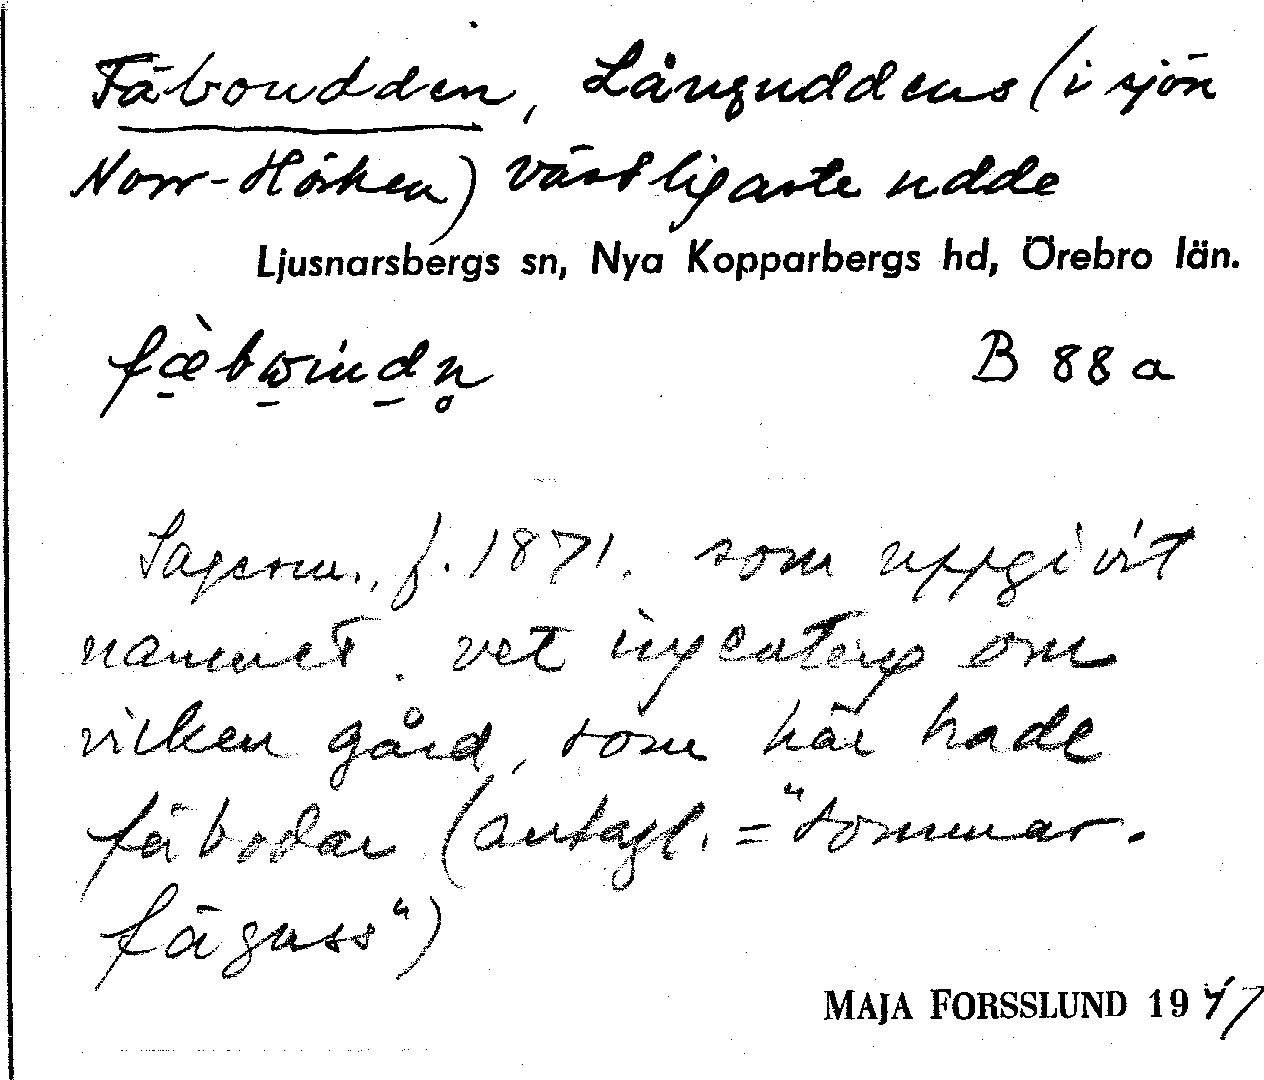 Fäboudden, Långuddens (i sjön
Norr-Hörken) västligaste udde
Ljusnarsbergs sn, Nya Kopparbergs hd, Örebro län.
B 88 a
Sagesm., f. 1871. som uppgivit
namnet. vet ingenting om
vilken gård, som här hade
fäbodar (antagl. = "sommar-
fäguss")
MAJA FORSSLUND 1947